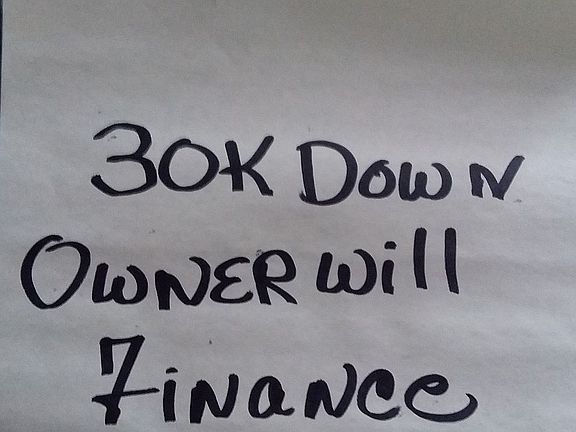 30K DOWN
OWNER Will
FiNaNce